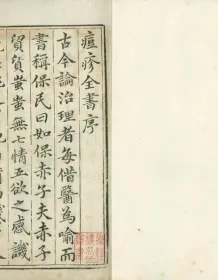 痘疹全書序
古今論治理者每借醫為喻而
書稱保民曰如保赤子夫赤子
貿貿蚩蚩無七情五欲之感譏